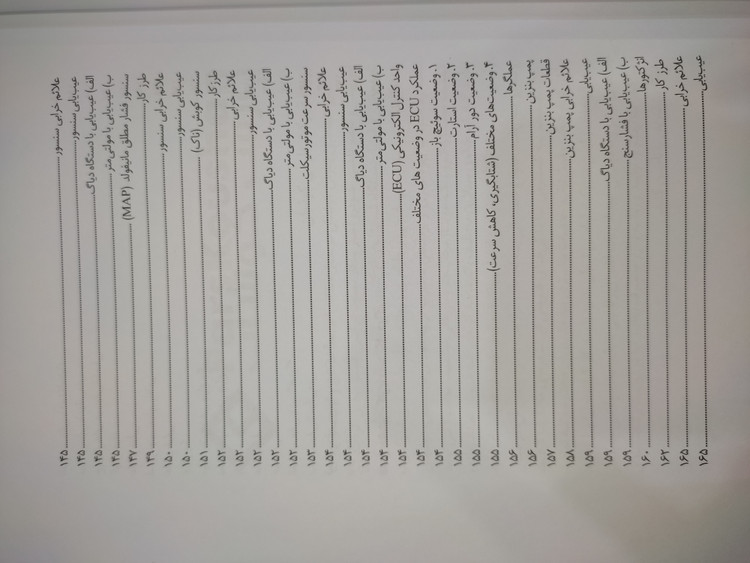 علائم خرابی سنسور ........ ۱۴۵
عیب‌یابی سنسور ........ ۱۴۵
الف) عیب‌یابی با دستگاه دیاگ ........ ۱۴۵
ب) عیب‌یابی با مولتی‌متر ........ ۱۴۵
سنسور فشار مطلق مانیفولد (MAP) ........ ۱۴۷
طرز کار ........ ۱۴۹
علائم خرابی سنسور ........ ۱۵۰
عیب‌یابی سنسور ........ ۱۵۰
سنسور کوبش (ناک) ........ ۱۵۱
طرز کار ........ ۱۵۲
علائم خرابی ........ ۱۵۲
عیب‌یابی سنسور ........ ۱۵۲
الف) عیب‌یابی با دستگاه دیاگ ........ ۱۵۲
ب) عیب‌یابی با مولتی‌متر ........ ۱۵۳
سنسور سرعت موتورسیکلت ........ ۱۵۳
علائم خرابی ........ ۱۵۴
عیب‌یابی سنسور ........ ۱۵۴
الف) عیب‌یابی با دستگاه دیاگ ........ ۱۵۴
ب) عیب‌یابی با مولتی‌متر ........ ۱۵۴
واحد کنترل الکترونیکی (ECU) ........ ۱۵۴
عملکرد ECU در وضعیت های مختلف ........ ۱۵۴
۱. وضعیت سوئیچ باز ........ ۱۵۴
۲. وضعیت استارت ........ ۱۵۵
۳. وضعیت دور آرام ........ ۱۵۵
۴. وضعیت‌های مختلف (شتابگیری، کاهش سرعت) ........ ۱۵۵
عملگرها ........ ۱۵۶
پمپ بنزین ........ ۱۵۶
قطعات پمپ بنزین ........ ۱۵۷
علائم خرابی پمپ بنزین ........ ۱۵۸
عیب‌یابی ........ ۱۵۹
الف) عیب‌یابی با دستگاه دیاگ ........ ۱۵۹
ب) عیب‌یابی با فشارسنج ........ ۱۵۹
انژکتورها ........ ۱۶۰
طرز کار ........ ۱۶۲
علائم خرابی ........ ۱۶۵
عیب‌یابی ........ ۱۶۵